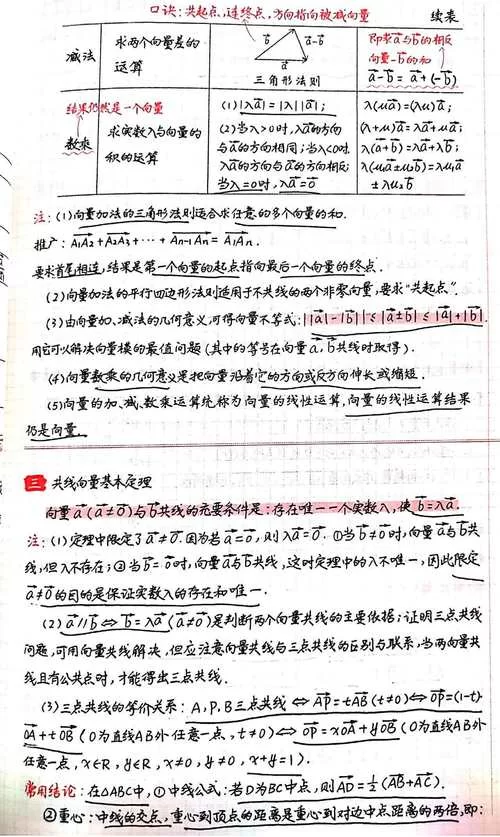 口诀：共起点，连终点，方向指向被减向量
续表
减法
求两个向量差的
运算
b
a-b
a
三角形法则
即求a与b的相反
向量-b的和
a-b=a+(-b)
结果仍然是一个向量
数乘
求实数λ与向量a的
积的运算
(1)|λa|=|λ||a|；
(2)当λ>0时，λa的方向
与a的方向相同；当λ<0时，
λa的方向与a的方向相反；
当λ=0时，λa=0
λ(μa)=(λμ)a；
(λ+μ)a=λa+μa；
λ(a+b)=λa+λb；
λ(μ₁a±μ₂b)=λμ₁a
±λμ₂b
注：(1)向量加法的三角形法则适合求任意的多个向量的和.
推广：A₁A₂+A₂A₃+…+Aₙ₋₁Aₙ=A₁Aₙ.
要求首尾相连，结果是第一个向量的起点指向最后一个向量的终点.
(2)向量加法的平行四边形法则适用于不共线的两个非零向量，要求“共起点”.
(3)由向量加、减法的几何意义，可得向量不等式：||a|-|b||≤|a±b|≤|a|+|b|.
用它可以解决向量模的最值问题(其中的等号在向量a,b共线时取得).
(4)向量数乘的几何意义是把向量沿着它的方向或反方向伸长或缩短.
(5)向量的加、减、数乘运算统称为向量的线性运算，向量的线性运算结果
仍是向量.
三 共线向量基本定理
向量a(a≠0)与b共线的充要条件是：存在唯一一个实数λ，使b=λa.
注：(1)定理中限定了a≠0.因为若a=0，则λa=0.①当b≠0时，向量a与b共
线，但λ不存在；②当b=0时，向量a与b共线，这时定理中的λ不唯一，因此限定
a≠0的目的是保证实数λ的存在和唯一.
(2)a∥b⇔b=λa(a≠0)是判断两个向量共线的主要依据；证明三点共线
问题，可用向量共线解决，但应注意向量共线与三点共线的区别与联系，当两向量共
线且有公共点时，才能得出三点共线.
(3)三点共线的等价关系：A,P,B三点共线⇔AP=tAB(t≠0)⇔OP=(1-t)
OA+tOB(O为直线AB外任意一点，t≠0)⇔OP=xOA+yOB(O为直线AB外
任意一点，x∈R,y∈R,x≠0,y≠0,x+y=1).
常用结论：在△ABC中，①中线公式：若D为BC中点，则AD=½(AB+AC).
②重心：中线的交点，重心到顶点的距离是重心到对边中点距离的两倍，即：